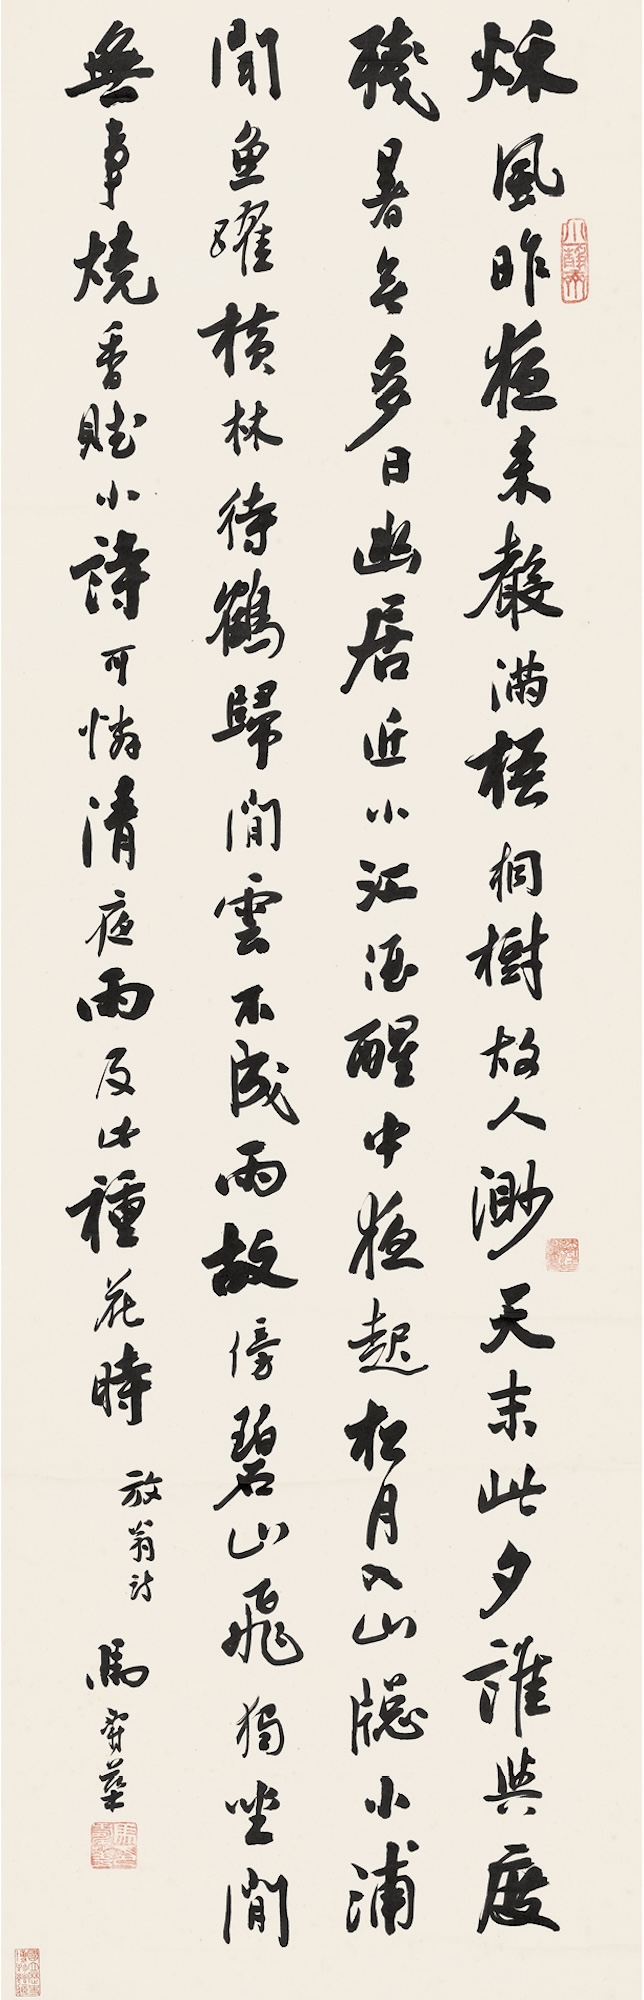 秌風昨夜来聲滿梧桐樹故人渺天末此夕誰與度
殘暑無多日幽居近小江酒醒中夜起松月入山牕小浦
聞魚躍橫林待鶴歸閒雲不成雨故傍碧山飛獨坐閒
無事燒香賦小詩可憐清夜雨及此種花時
放翁詩
馬壽華
小靜齋